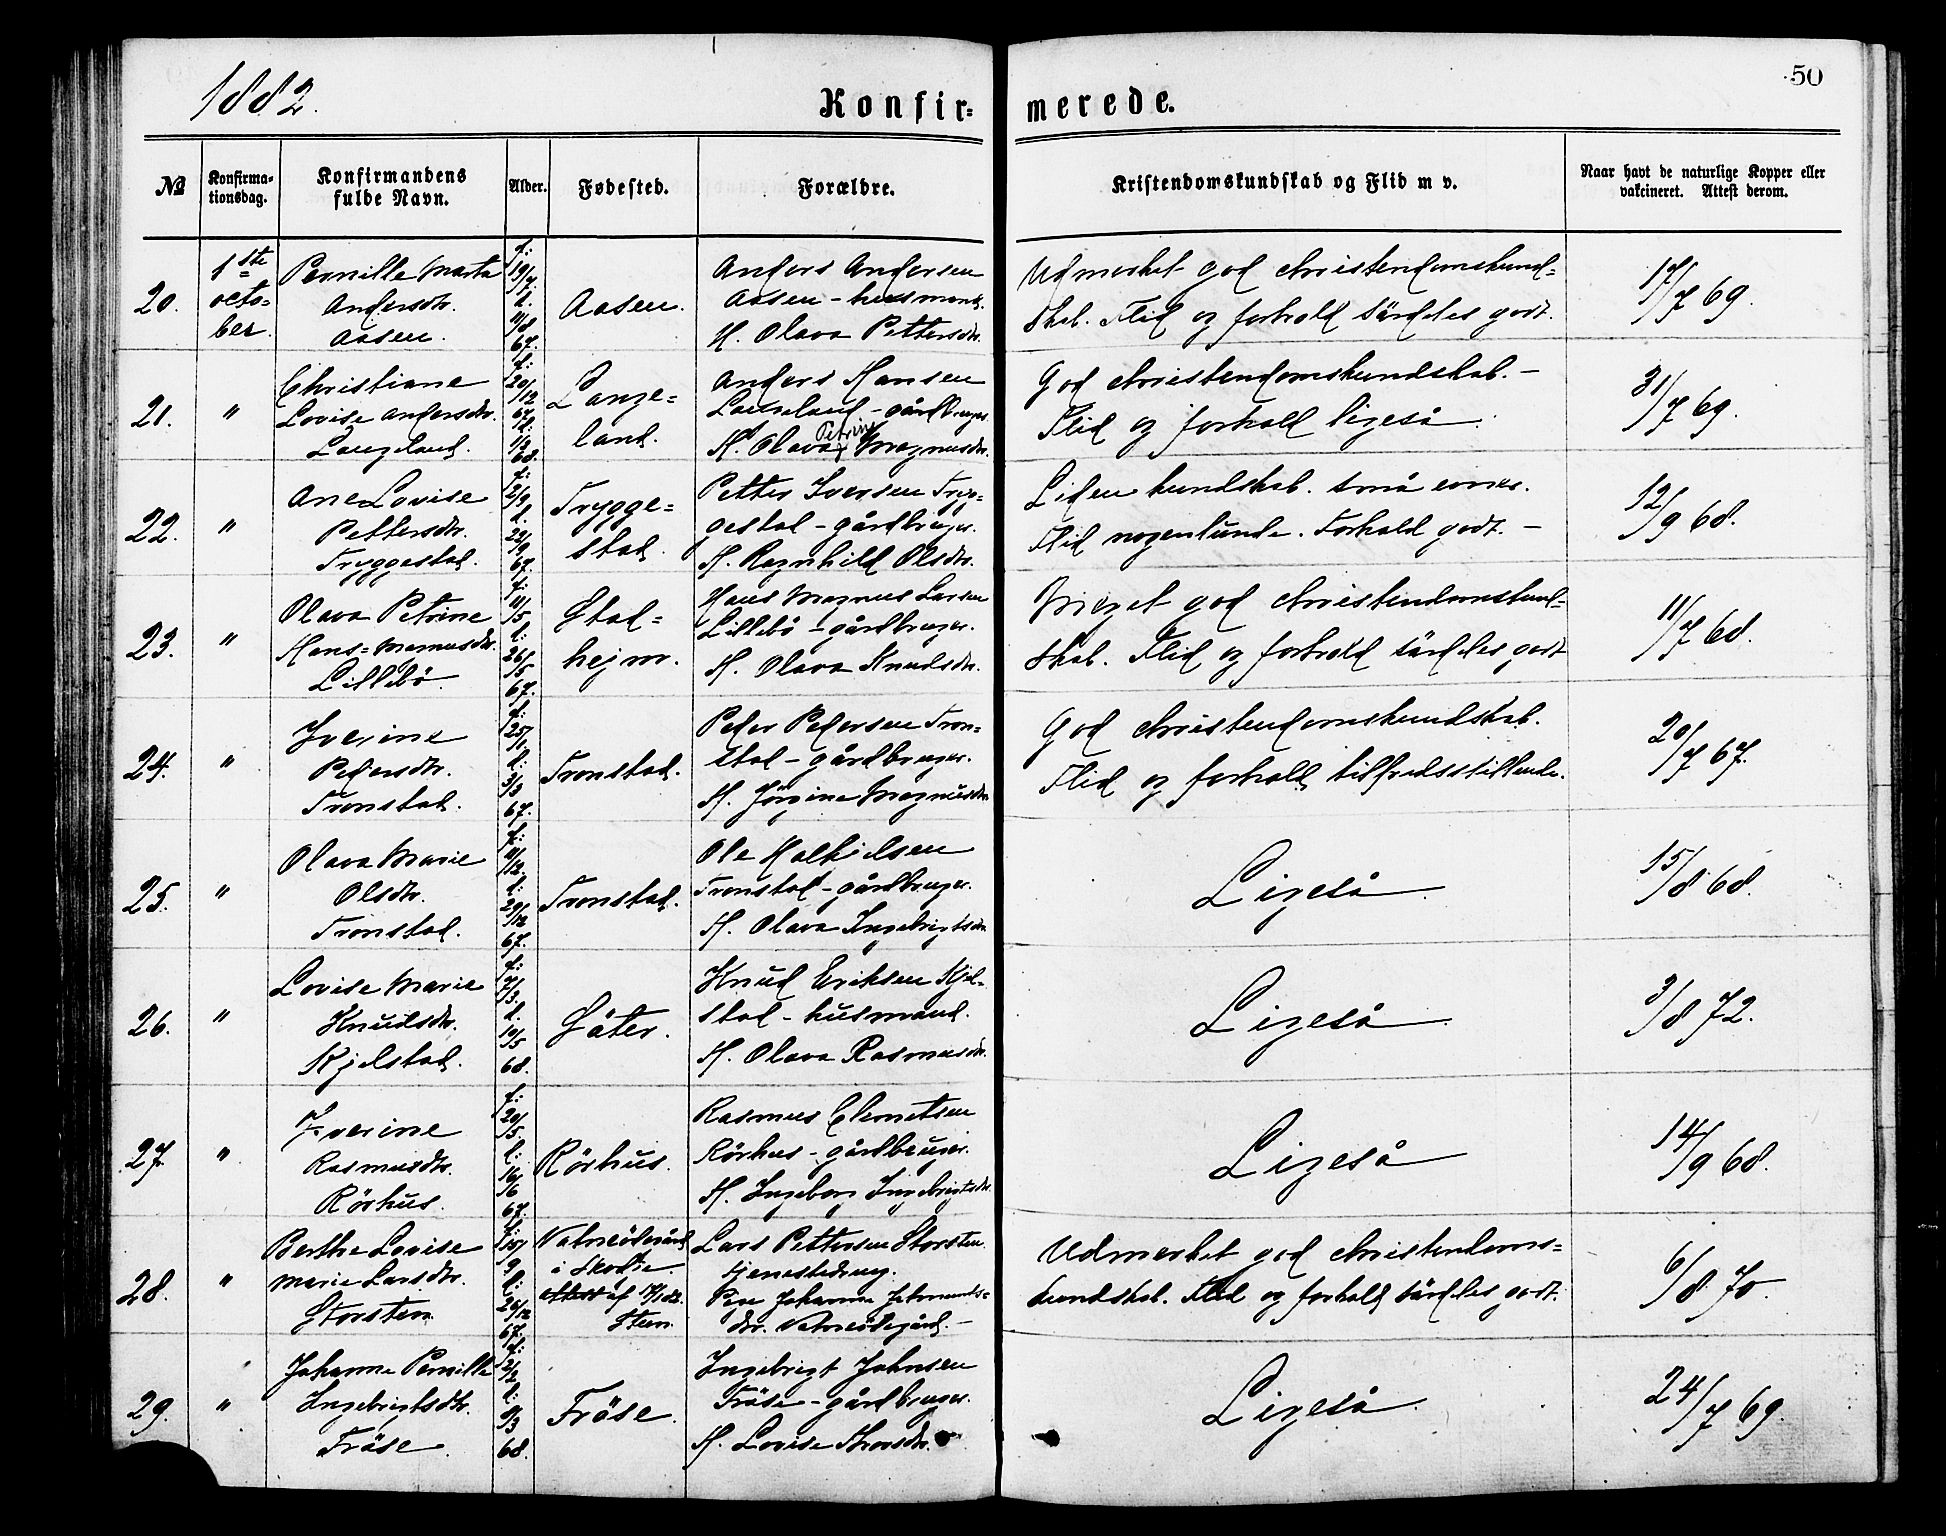 1882.
Konfir=
merede.
50
№
Konfirma-
tionsdag.
Konfirmandens
fulde Navn.
Alder.
Fødested.
Forældre.
Kristendomskundskab og Flid m v.
Naar havt de naturlige Kopper eller
vakcineret. Attest derom.
20.
1ste
octo=
ber.
Pernille Marta
Andersdtr.
Aasen.
f:
19/7.
d.
11/8
67.
Aasen.
Anders Andersen
Aasen - husmand.
H. Olava Pettersdtr.
Udmerket god christendomskund=
skab. Flid og forhold särdeles godt.
17/7 69.
21.
"
Christiane
Lovise Andersdtr.
Langeland.
f:
20/12
67.
d:
1/2
68.
Lange=
land.
Anders Hansen
Langeland - gårdbruger.
H. Olava Petrine Magnusdtr.
God christendomskundskab. -
Flid og forhold ligeså.
31/7 69.
22.
"
Ane Lovise
Pettersdtr.
Tryggestad.
f:
2/9
d.
22/9
67.
Trygge=
stad.
Petter Iversen Tryg=
gestad - gårdbruger.
H. Ragnhild Olsdtr.
Liden kundskab. små evner.
Flid nogenlunde. Forhold godt. -
12/9 68.
23.
"
Olava Petrine
Hans=Magnusdtr.
Lillebö.
f:
11/5
d:
26/5
67.
Stad=
hejm.
Hans Magnus Larsen
Lillebö - gårdbruger.
H. Olava Knudsdtr.
Meget god christendomskund=
skab. Flid og forhold särdeles godt
11/7 68.
24.
"
Iverine
Pedersdtr.
Tronstad.
f:
25/1
d:
3/3
67.
Tronstad.
Peder Pedersen Tron=
stad - gårdbruger.
H. Jörgine Magnusdtr.
God christendomskundskab.
Flid og forhold tilfredsstillende.
20/7 67.
25.
"
Olava Marie
Olsdtr.
Tronstad.
f:
11/12
d:
29/12
67.
Tronstad.
Ole Halkjelsen
Tronstad - gårdbruger.
H. Olava Ingebrigtsdtr.
Ligeså.
15/8 68.
26.
"
Lovise Marie
Knudsdtr.
Kjelstad.
f:
7/3
d.
10/5
68.
Säter.
Knud Eriksen Kjel=
stad - husmand.
H. Olava Rasmusdtr.
Ligeså.
3/8 72.
27.
"
Iverine
Rasmusdtr.
Rörhus.
f:
20/5.
d:
16/6
67.
Rörhus.
Rasmus Clemetsen
Rörhus - gårdbruger.
H. Ingeborg Ingebrigtsdtr.
Ligeså
14/9 68.
28.
"
Berthe Lovise
Marie Larsdtr.
Storsten
f:
15/9
d:
26/12
67.
Vatneödegård
i Skodje.
attest af
Steen.
Lars Pettersen Storsten.
tjenestedreng.
Pige Johanne Johannes=
dtr. Vatneödegård. -
Udmerket god christendoms=
kundskab. Flid og forhold särdeles godt.
6/8 70.
29.
"
Johanne Pernille
Ingebrigtsdtr.
Fröse.
f:
2/2
d:
8/3
68.
Fröse.
Ingebrigt Johnsen
Fröse - gårdbruger.
H. Lovise
Ligeså.
24/7 69.